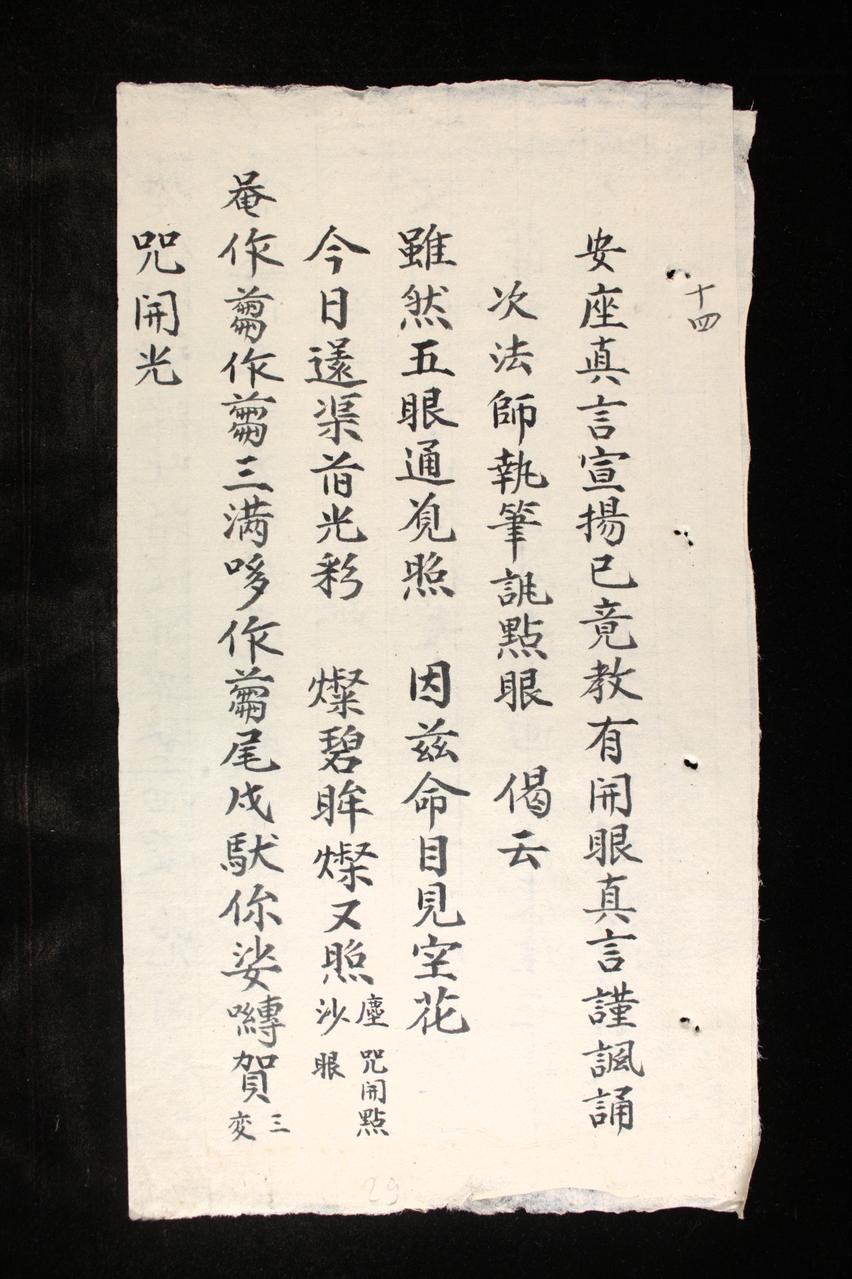 十四
安座真言宣揚已竟教有開眼真言謹諷誦
次法師執筆誂點眼 偈云
雖然五眼通覓照 因兹命目見空花
今日還渠首光彩 燦碧眸燦又照塵沙 咒開點眼
菴作蒭作蒭三满哆作蒭尾戍馱你娑嚩賀 三変
咒開光
29